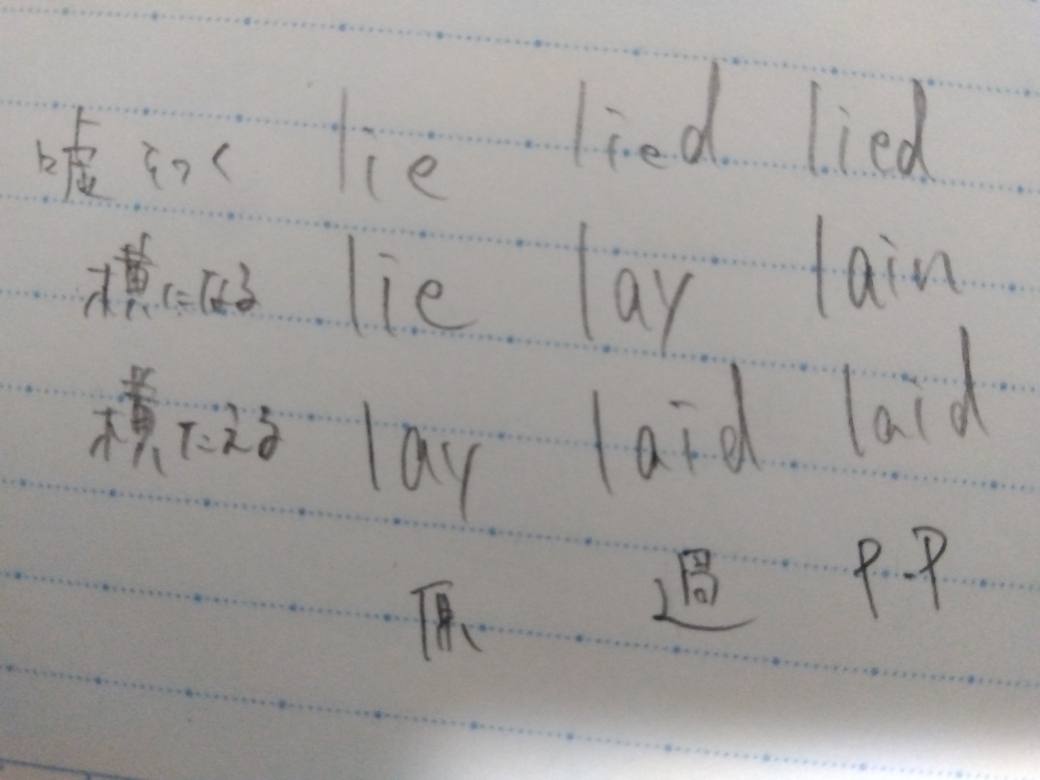 嘘をつく lie lied lied
横になる lie lay lain
横たえる lay laid laid
原 過 P.P